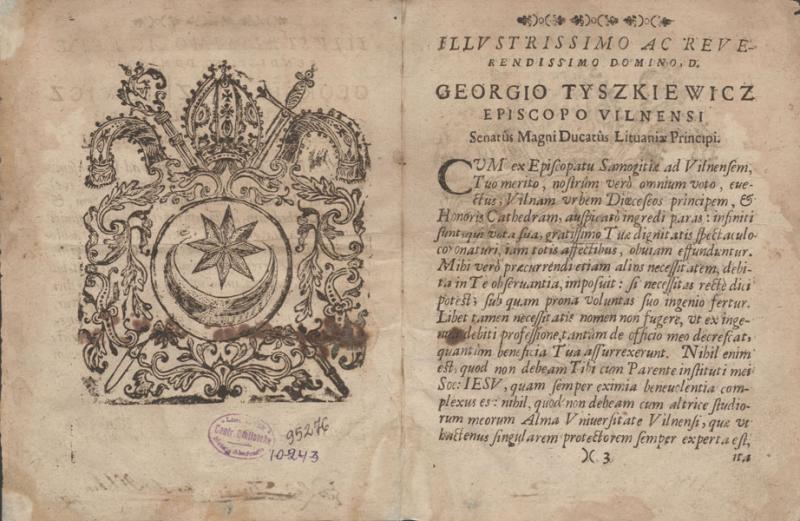 Centr. Biblioteka
95276
10243
ILLVSTRISSIMO AC REVE-
RENDISSIMO DOMINO, D.
GEORGIO TYSZKIEWICZ
EPISCOPO VILNENSI
Senatûs Magni Ducatûs Lituaniæ Principi.
CVM ex Episcopatu Samogitiæ ad Vilnensem,
Tuo merito, nostrûm verò omnium voto, eue-
ctus, Vilnam vrbem Diœceseos principem, &
Honoris Cathedram, auspicatò ingredi paras: infiniti
sunt, qui vota sua, gratissimo Tuæ dignitatis spectaculo
coronaturi, iam totis affectibus, obuiam effunduntur.
Mihi verò præcurrendi etiam alios necessitatem, debi-
ta in Te obseruantia, imposuit: si necessitas rectè dici
potest; sub quam prona voluntas suo ingenio fertur.
Libet tamen necessitatis nomen non fugere, vt ex inge-
nua debiti professione, tantùm de officio meo decrescat,
quantùm beneficia Tua assurrexerunt. Nihil enim
est, quod non debeam Tibi cum Parente instituti mei
Soc: IESV, quam semper eximia beneuolentia com-
plexus es: nihil, quod non debeam cum altrice studio-
rum meorum Alma Vniuersitate Vilnensi, quæ vt
hactenus singularem protectorem semper experta est,
)( 3 ita